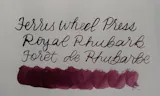 Ferris Wheel Press
Royal Rhubarb
Forêt de Rhubarbe